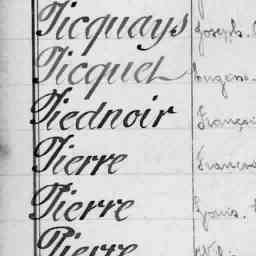 Picquays Joseph
Picquet Eugène
Piednoir François
Pierre François
Pierre Louis
Pierre